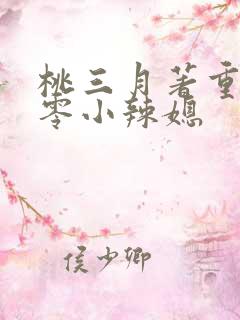 桃三月著重
零小辣媳
侯少卿